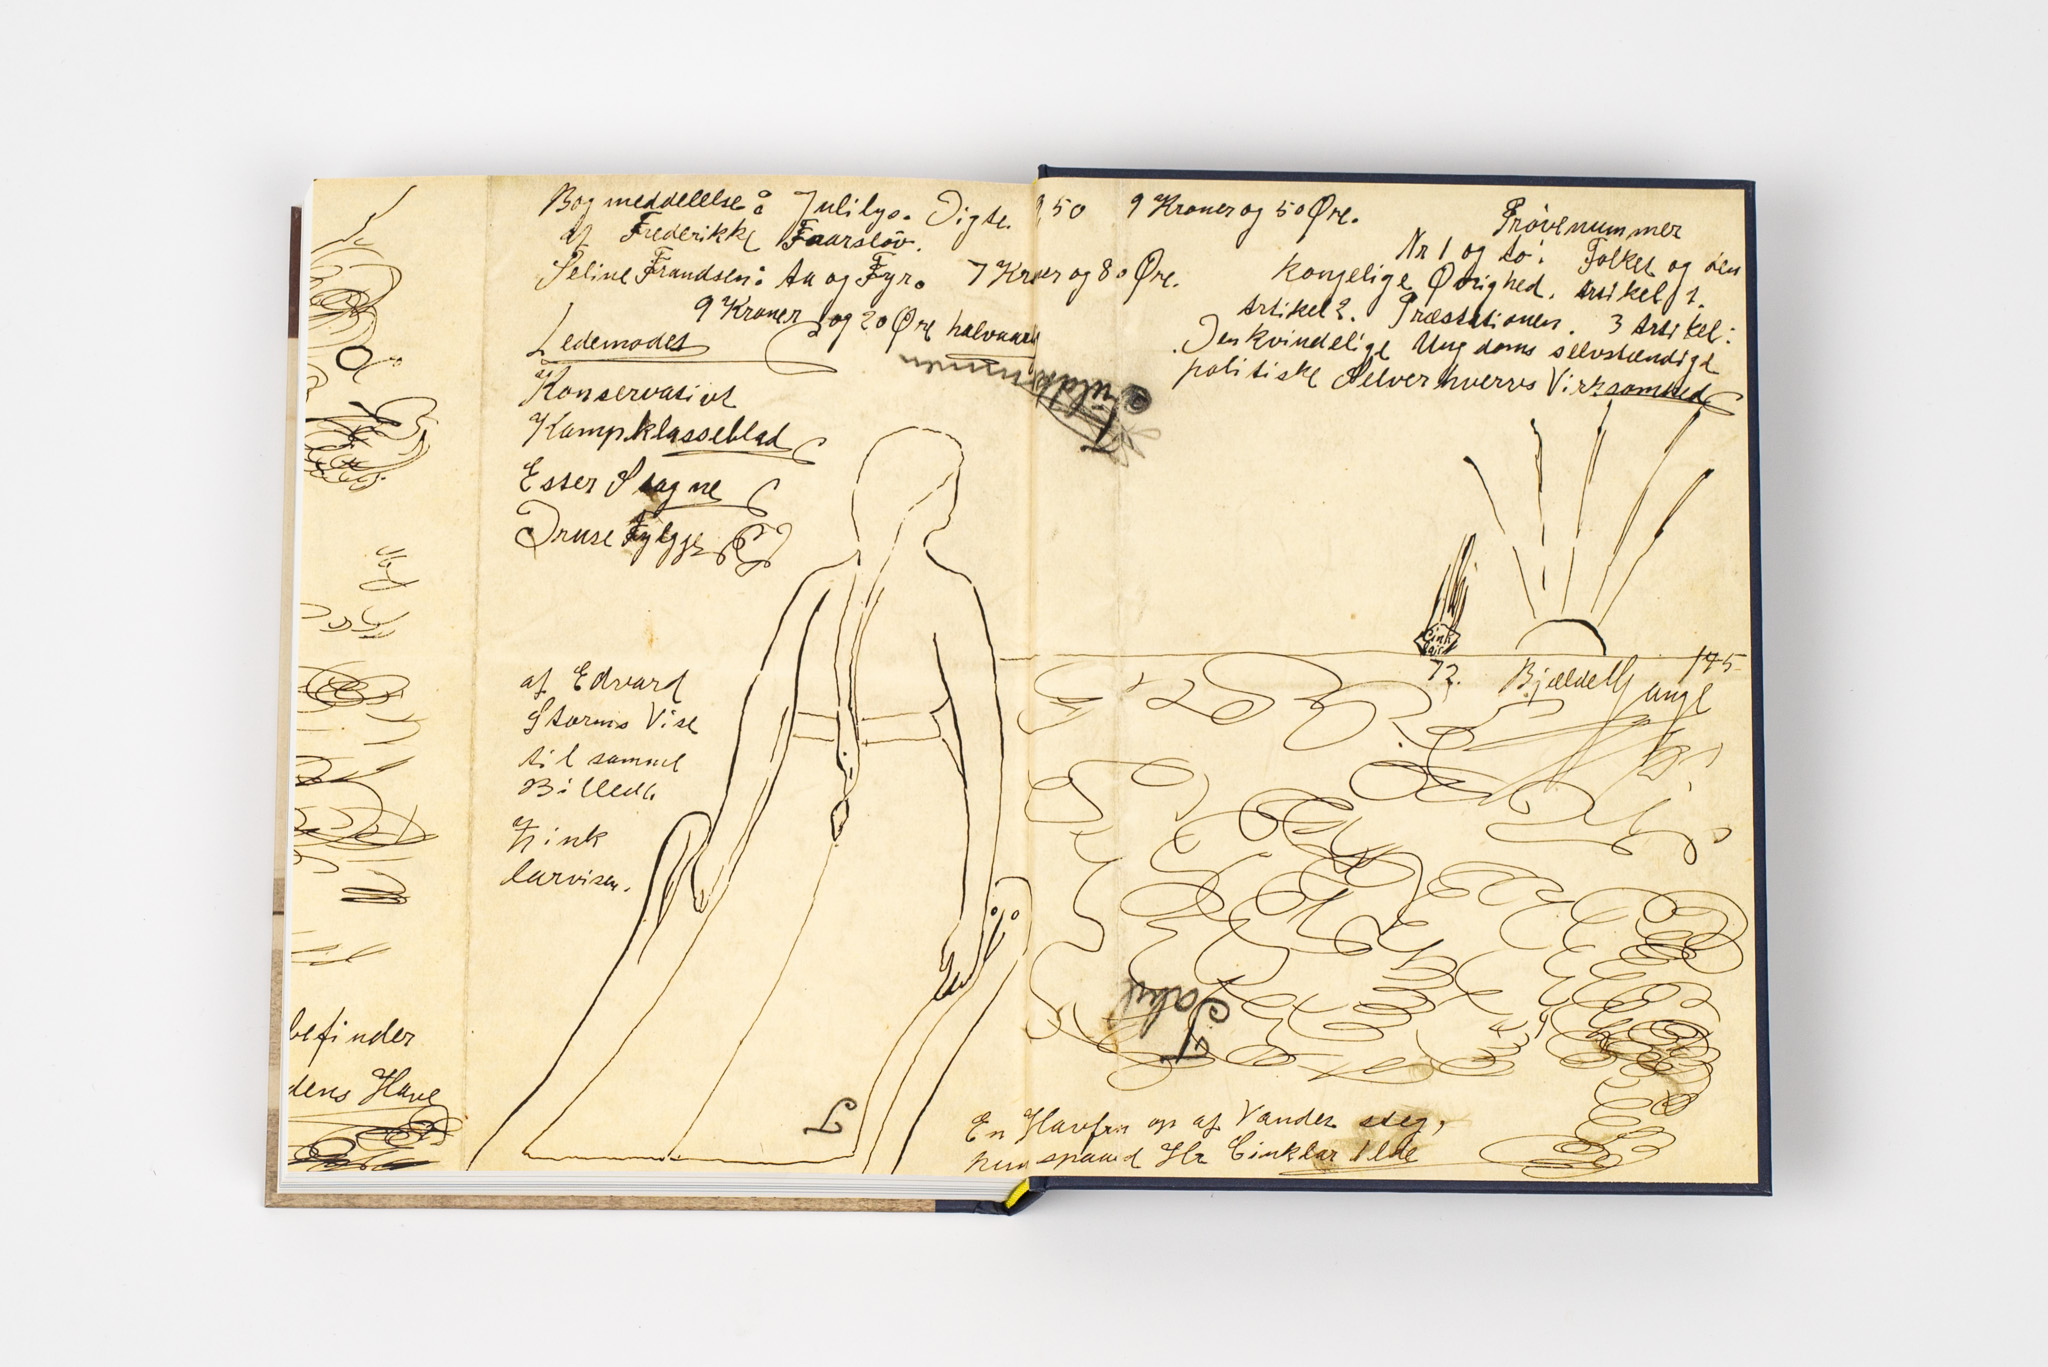 Bogmeddelelse: Julilys. Digte. 9 50 9 Kroner og 50 Øre.
af Frederikke Faarsløv.
Seline Frandsen: Aa og Fyr. 7 Kroner og 80 Øre.
9 Kroner og 20 Øre halvaar
Ledemodet
Konservativt
Kampklasseblad
Esser Sagne
Druse Fylgje
af Edvard
Storms Vise
til samme
Billede
Zink
larvisen.
befinder
dens Have
Prøvenummer
Nr 1 og to: Folket og den
kongelige Øvrighed. Artikel 1.
Artikel 2. Præstationen. 3 Artikel:
Den kvindelige Ungdoms selvstændige
politiske Selverhvervs Virksomhed
Cink
lair
72. 175
En Havfru op af Vandet steg,
hun spaaed Hr Cinklar Ilde